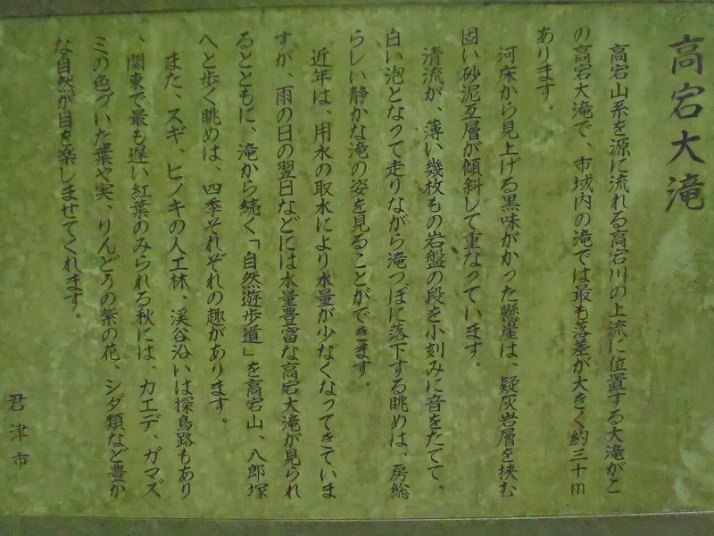 高宕大滝
高宕山系を源に流れる高宕川の上流に位置する大滝がこ
の高宕大滝で、市域内の滝では最も落差が大きく約三十m
あります。
河床から見上げる黒味がかった懸崖は、疑灰岩層を挟む
固い砂泥互層が傾斜して重なっています。
清流が、薄い幾枚もの岩盤の段を小刻みに音をたてて、
白い泡となって走りながら滝つぼに落下する眺めは、房総
らしい静かな滝の姿を見ることができます。
近年は、用水の取水により水量が少なくなってきていま
すが、雨の日の翌日などには水量豊富な高宕大滝が見られ
るとともに、滝から続く「自然遊歩道」を高宕山、八郎塚
へと歩く眺めは、四季それぞれの趣があります。
また、スギ、ヒノキの人工林、渓谷沿いは探鳥路もあり
、関東で最も遅い紅葉のみられる秋には、カエデ、ガマズ
ミの色づいた葉や実、りんどうの紫の花、シダ類など豊か
な自然が目を楽しませてくれます。
君津市